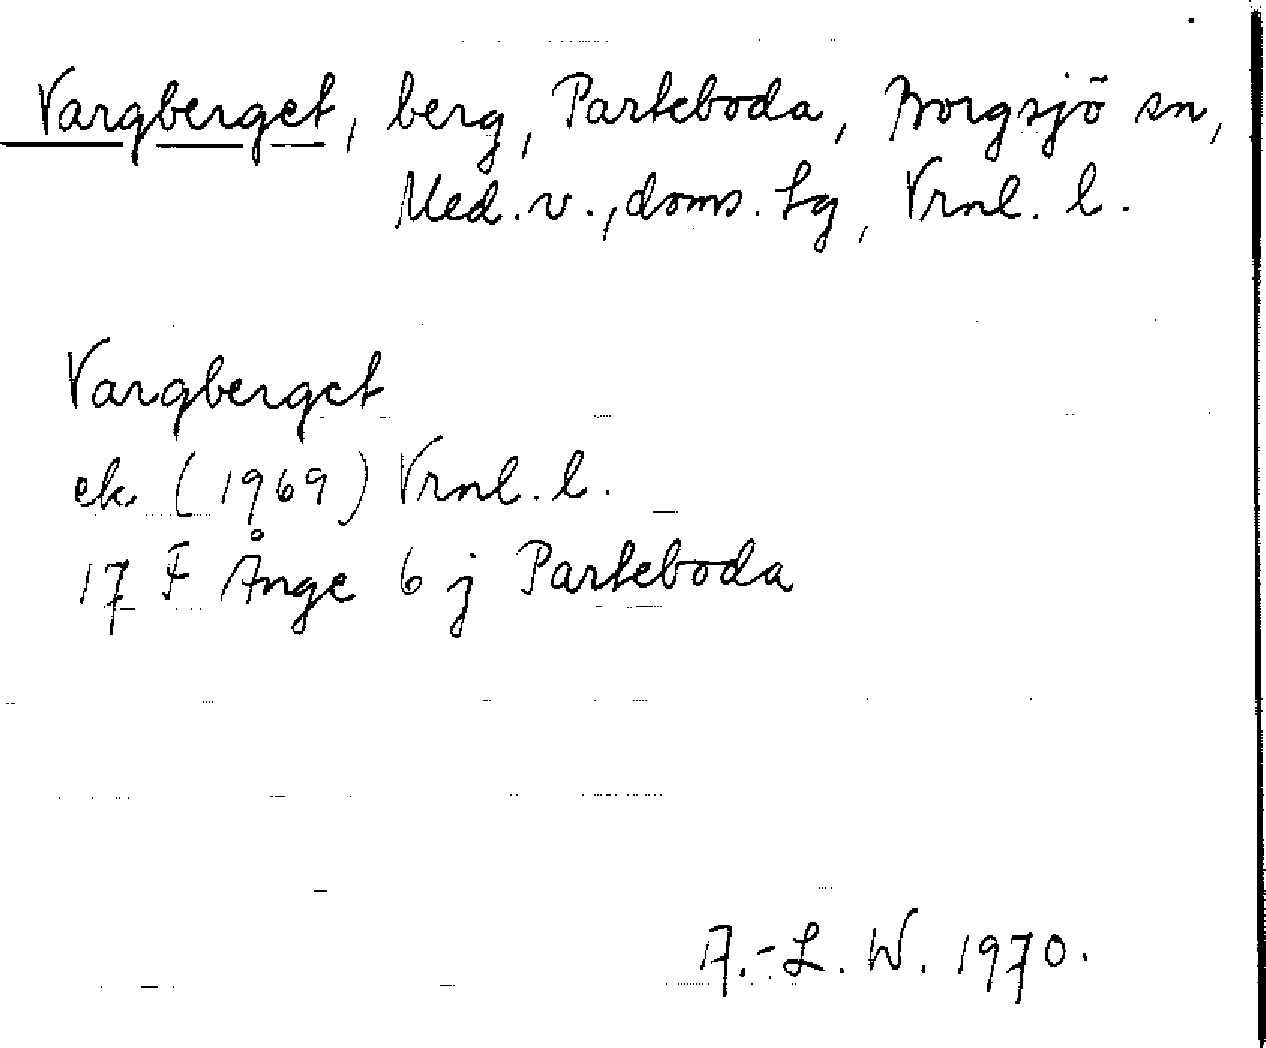 Vargberget, berg, Parteboda, Borgsjö sn,
Med. v., doms. lg, Vrnl. l.
Vargberget
ek. (1969) Vrnl. l.
17 F Ånge 6 j Parteboda
A.-L. W. 1970.